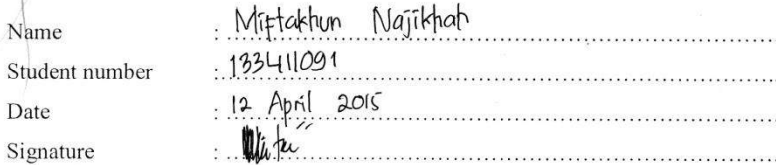 Name : Miftakhun Najikhah
Student number : 133411091
Date : 12 April 2015
Signature :